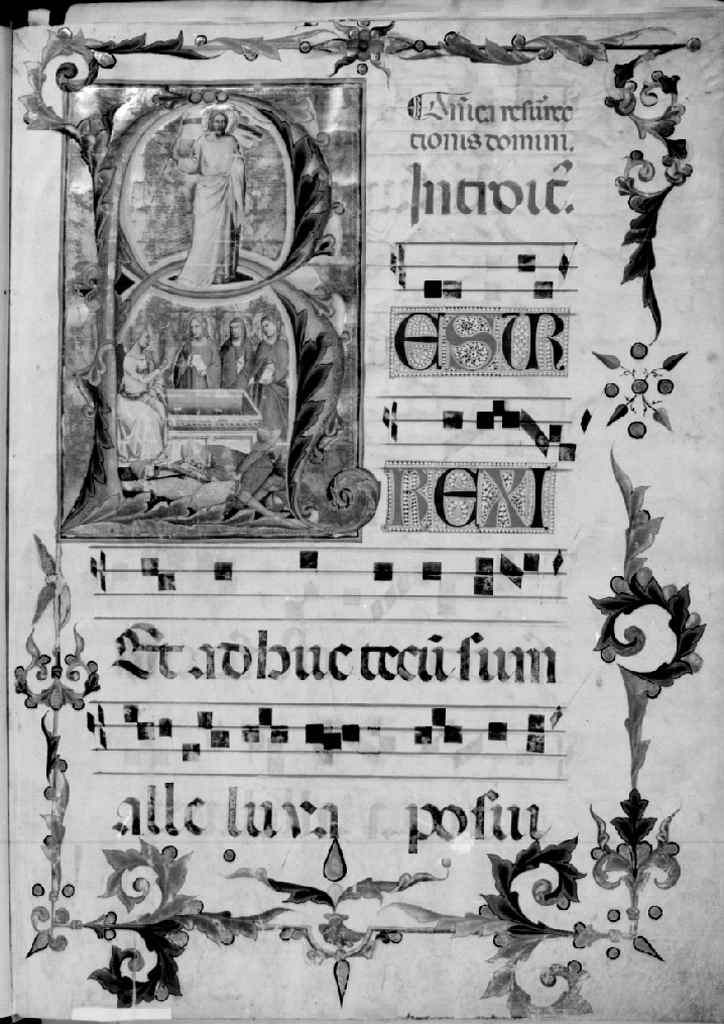 Dñica resurrec
tionis domini.
Introit᷒.
R ESUR
REXI
Et adhuc tecũ sum
alleluya posui